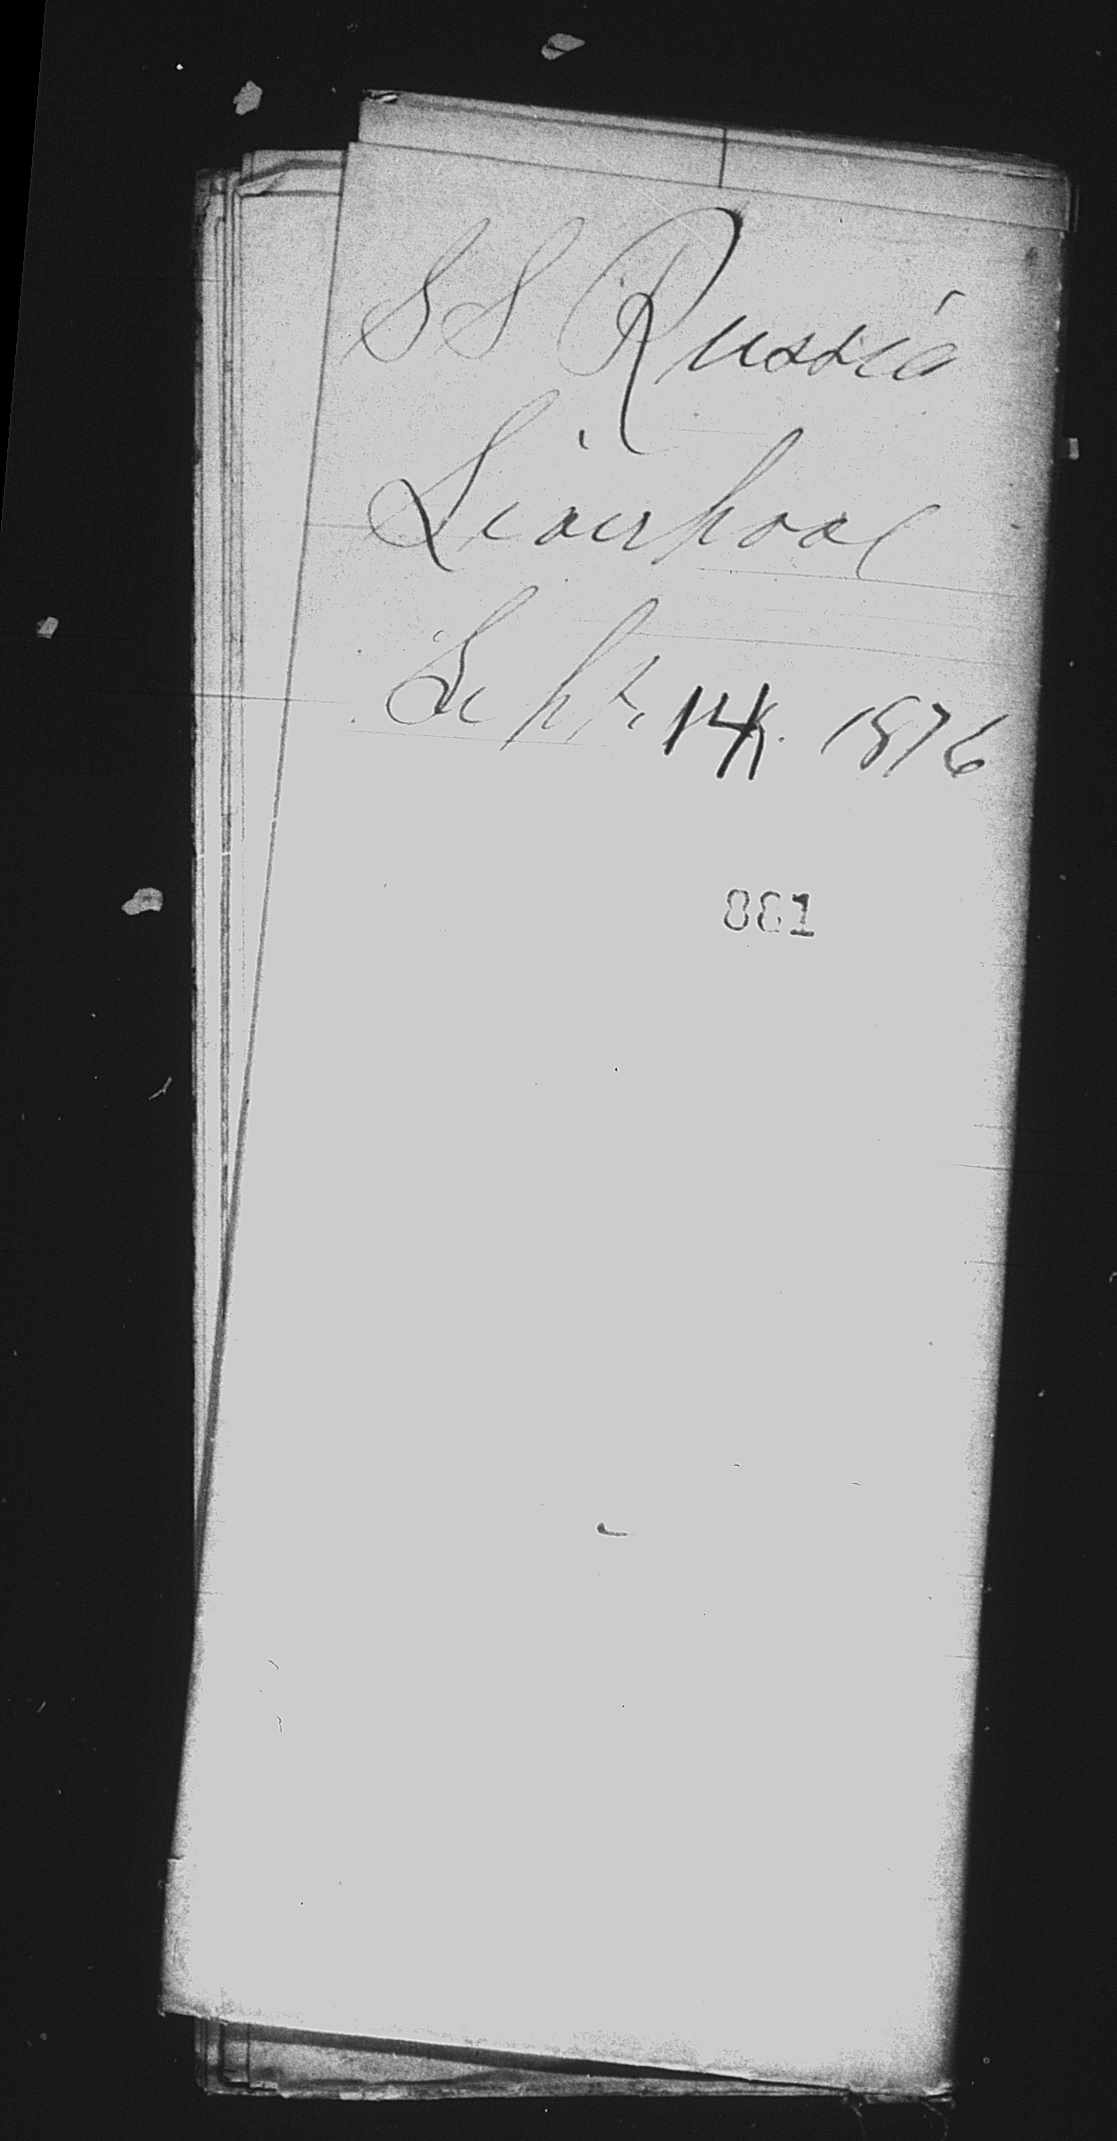 SS Russia
Liverpool
Sept. 14th. 1876
881